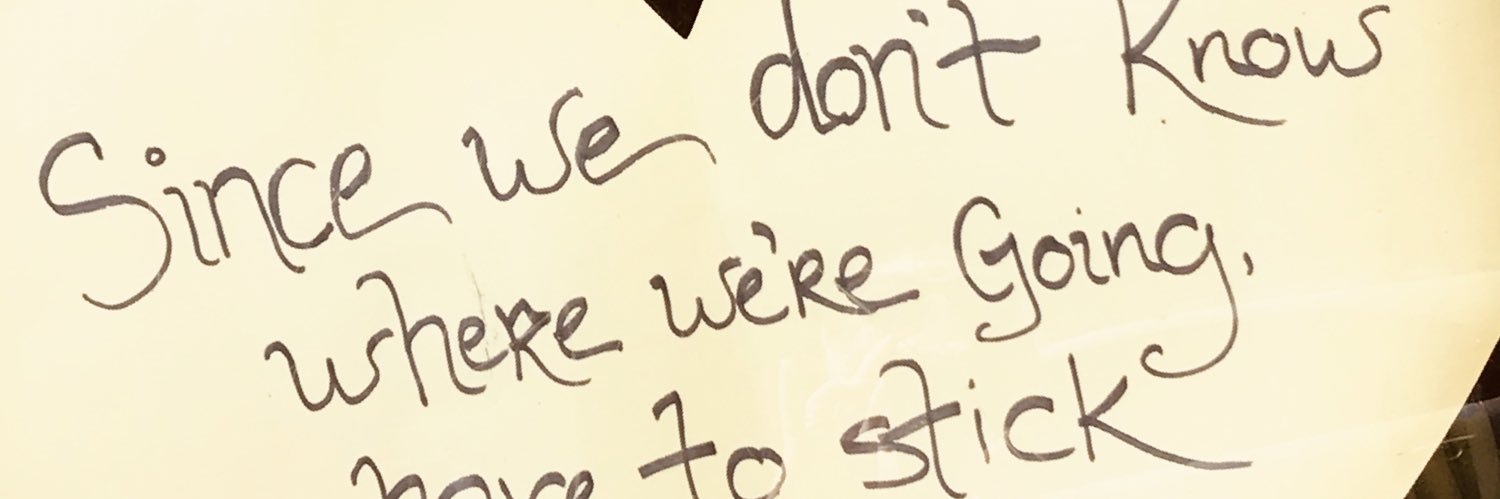 Since we don't know
where we're Going,
have to stick